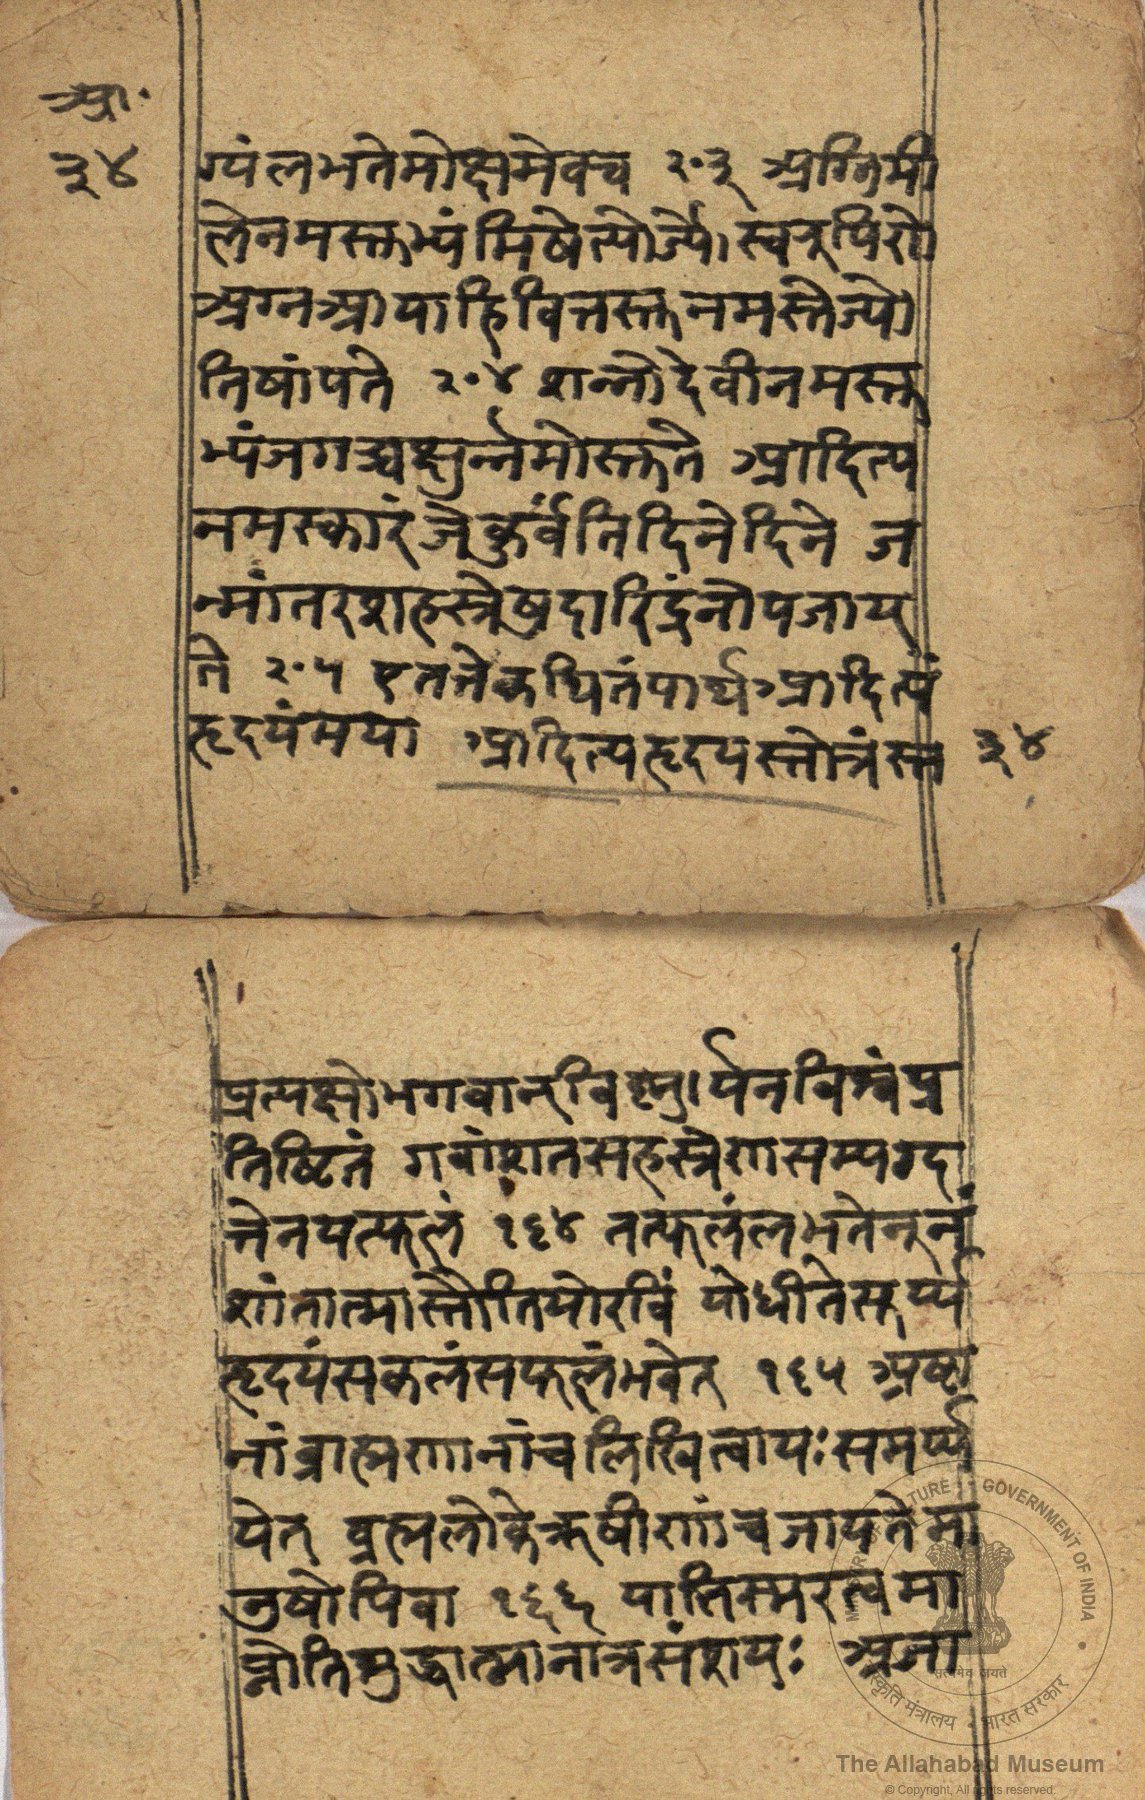 आ॰
३४
ग्यं लभते मोक्षमेवच २०३ अग्निमी
लेनमस्तुभ्यं मिषेत्योर्ज्ये स्वरूपिणे
अग्नआयाहि वित्तस्तु नमस्तेज्यो
तिषांपते २०४ शन्नोदेवीनमस्तु
भ्यं जगच्चक्षुर्न्नमोस्तुते आदित्य
नमस्कारं जे कुर्वंति दिनेदिने ज
न्मांतरशहस्त्रेषु दारिद्रं नोपजाय
ते २०५ एतत्तेकथितं पार्थ आदित्यं
हृदयंमया आदित्यहृदयस्तोत्रं स्तु
३४
प्रत्यक्षो भगवान्विष्णु र्येनविश्वं प्र
तिष्टितं गवांशतसहस्त्रेण सम्यग्द
त्तेनयत्फलं १६४ तत्फलं लभतेनूनं
शांतात्मास्तौतियोरविं योधीतेसूर्य्य
हृदयं सकलंसफलंभवेत् १६५ अष्टा
नांब्राह्मणानांच लिखित्वायः समर्प्प
येत् ब्रह्मलोकेऋषीणांच जायतेमा
नुषोपिवा १६६ यातिस्मरत्वमा
प्नोतिशुद्धात्मानात्रसंशयः अजा
सत्यमेव जयते
MINISTRY OF CULTURE · GOVERNMENT OF INDIA
संस्कृति मंत्रालय · भारत सरकार
The Allahabad Museum
© Copyright, All rights reserved.